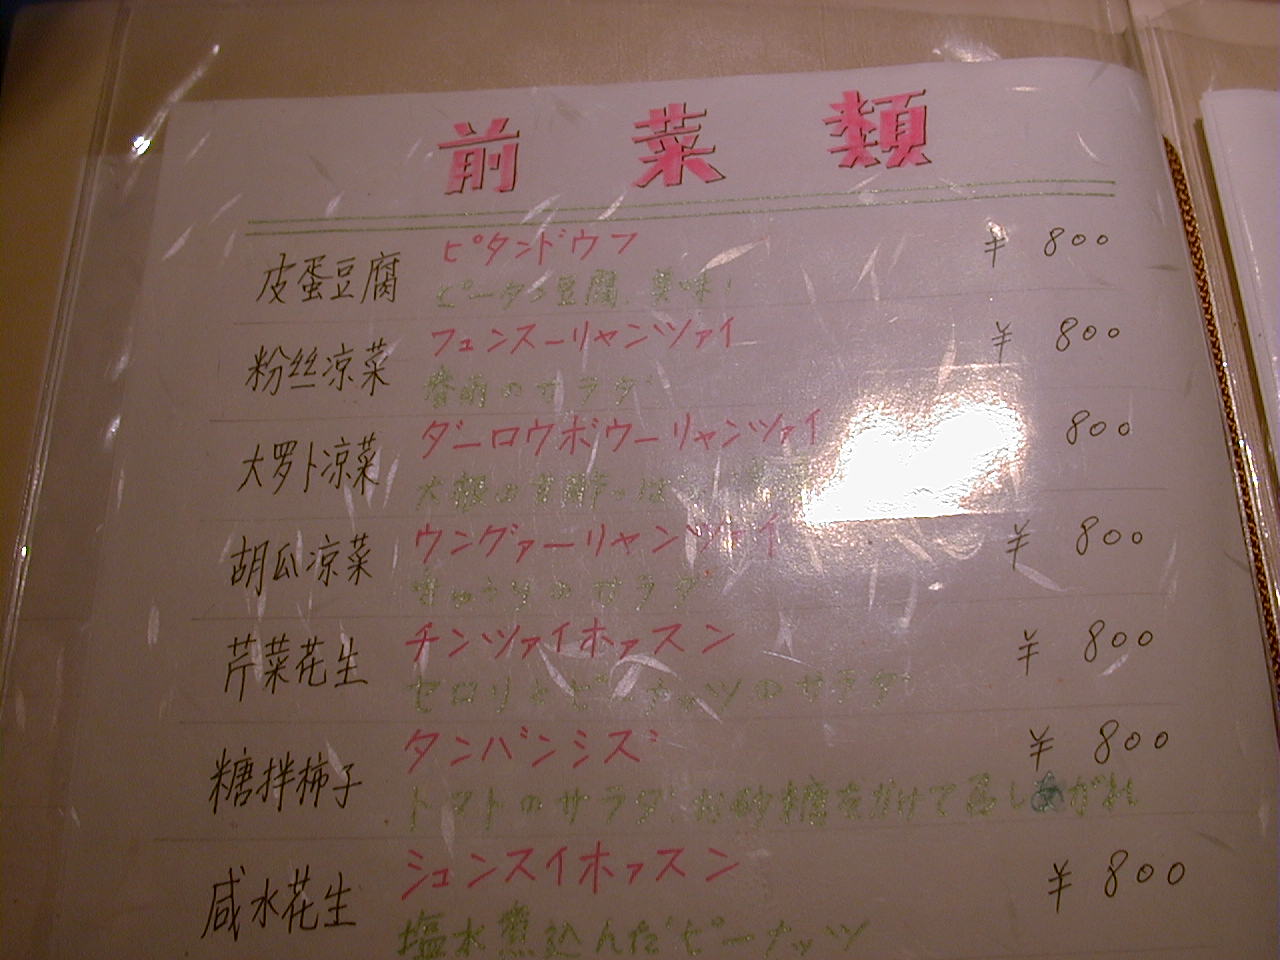 前菜類
皮蛋豆腐 ピタンドウフ ¥ 800
ピータン豆腐、美味!
粉丝凉菜 フェンスーリャンツァイ ¥ 800
春雨のサラダ
大罗卜凉菜 ダーロウボウーリャンツァイ 800
大根の
胡瓜凉菜 ウングァーリャンツァイ ¥ 800
きゅうりのサラダ
芹菜花生 チンツァイホァスン ¥ 800
セロリとピーナッツのサラダ
糖拌柿子 タンバンシズ ¥ 800
トマトのサラダ、お砂糖をかけて召しあがれ
咸水花生 シェンスイホァスン ¥ 800
塩水煮込んだピーナッツ